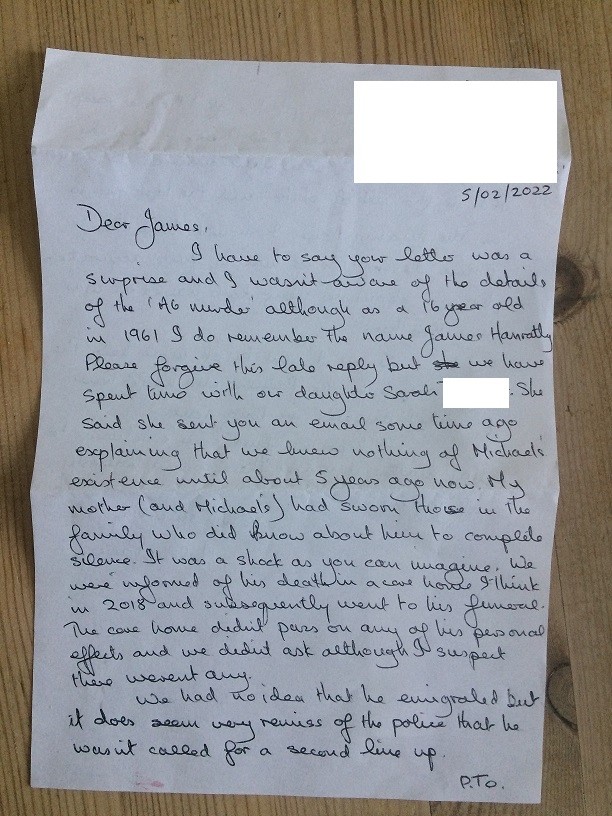 5/02/2022
Dear James,
I have to say your letter was a
surprise and I wasn't aware of the details
of the 'A6 murder' although as a 16 year old
in 1961 I do remember the name James Hanratty
Please forgive this late reply but she we have
spent time with our daughter Sarah . She
said she sent you an email some time ago
explaining that we knew nothing of Michael's
existence until about 5 years ago now. My
mother (and Michael's) had sworn those in the
family who did know about him to complete
silence. It was a shock as you can imagine. We
were informed of his death in a care home I think
in 2018 and subsequently went to his funeral.
The care home didn't pass on any of his personal
effects and we didn't ask although I suspect
there weren't any.
We had no idea that he emigrated but
it does seem very remiss of the police that he
wasn't called for a second line up.
P.T.O.